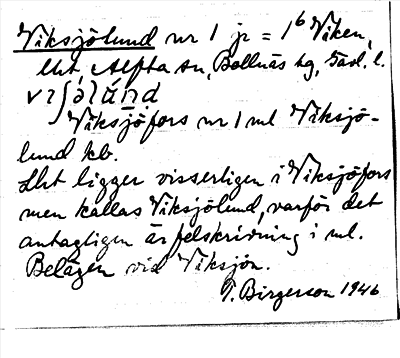 Viksjölund nr 1 jr = 1⁶ Viken,
lht, Alfta sn, Bollnäs tg, Gävl. l.
Viksjöfors nr 1 ml Viksjö-
lund kb.
Lht ligger visserligen i Viksjöfors
men kallas Viksjölund, varför det
antagligen är felskrivning i ml.
Belägen vid Viksjön.
T. Birgerson 1946